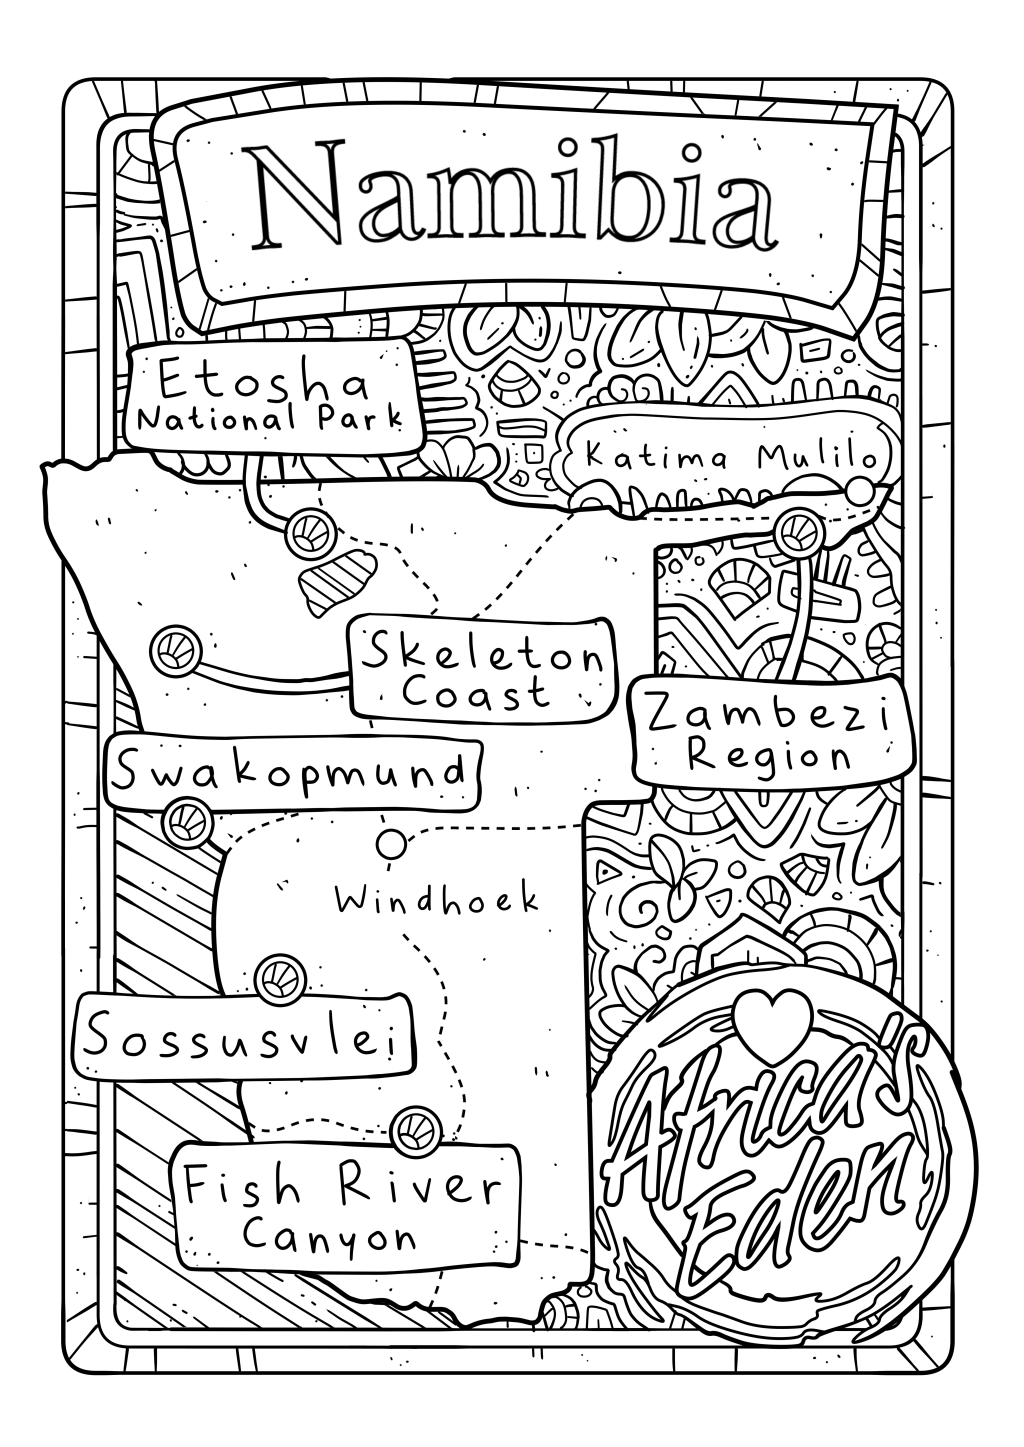 Namibia
Etosha
National Park
Katima Mulilo
Skeleton
Coast
Zambezi
Region
Swakopmund
Windhoek
Sossusvlei
Fish River
Canyon
Africa's
Eden